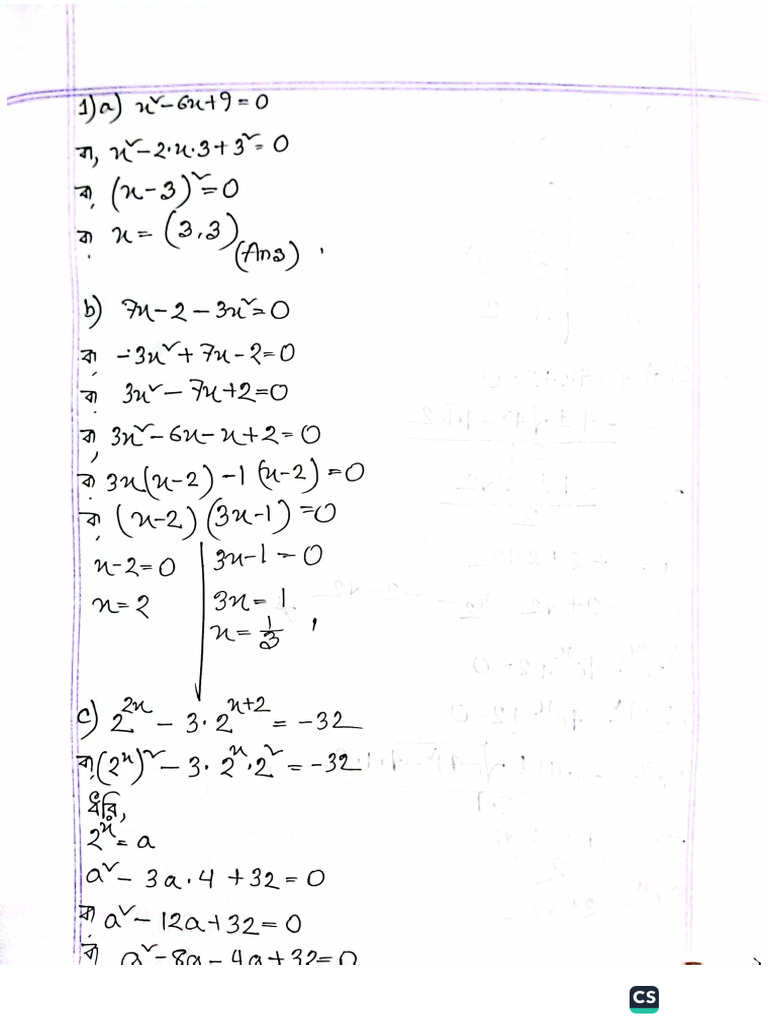 1)a) x² - 6x + 9 = 0
বা, x² - 2·x·3 + 3² = 0
বা, (x - 3)² = 0
বা, x = (3, 3) (Ans)
b) 7x - 2 - 3x² = 0
বা, -3x² + 7x - 2 = 0
বা, 3x² - 7x + 2 = 0
বা, 3x² - 6x - x + 2 = 0
বা, 3x(x - 2) - 1(x - 2) = 0
বা, (x - 2)(3x - 1) = 0
x - 2 = 0
x = 2
3x - 1 = 0
3x = 1
x = 1/3
c) 2^{2x} - 3·2^{x+2} = -32
বা, (2^x)² - 3·2^x·2² = -32
ধরি,
2^x = a
a² - 3a·4 + 32 = 0
বা, a² - 12a + 32 = 0
বা, a² - 8a - 4a + 32 = 0
CS